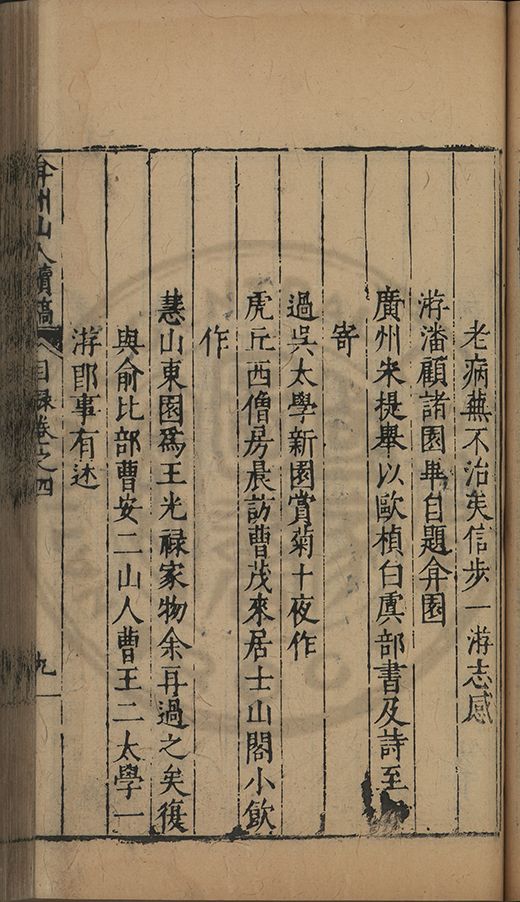 老病蕪不治矣信步一游志感
游潘顧諸園畢自題弇園
廣州朱提舉以歐楨白虞部書及詩至
寄
過吳太學新園賞菊十夜作
虎丘西僧房晨訪曹茂來居士山閣小飲
作
慧山東園爲王光祿家物余再過之矣復
與俞比部曹安二山人曹王二太學一
游即事有述
弇州山人續稿
目錄卷之四
九